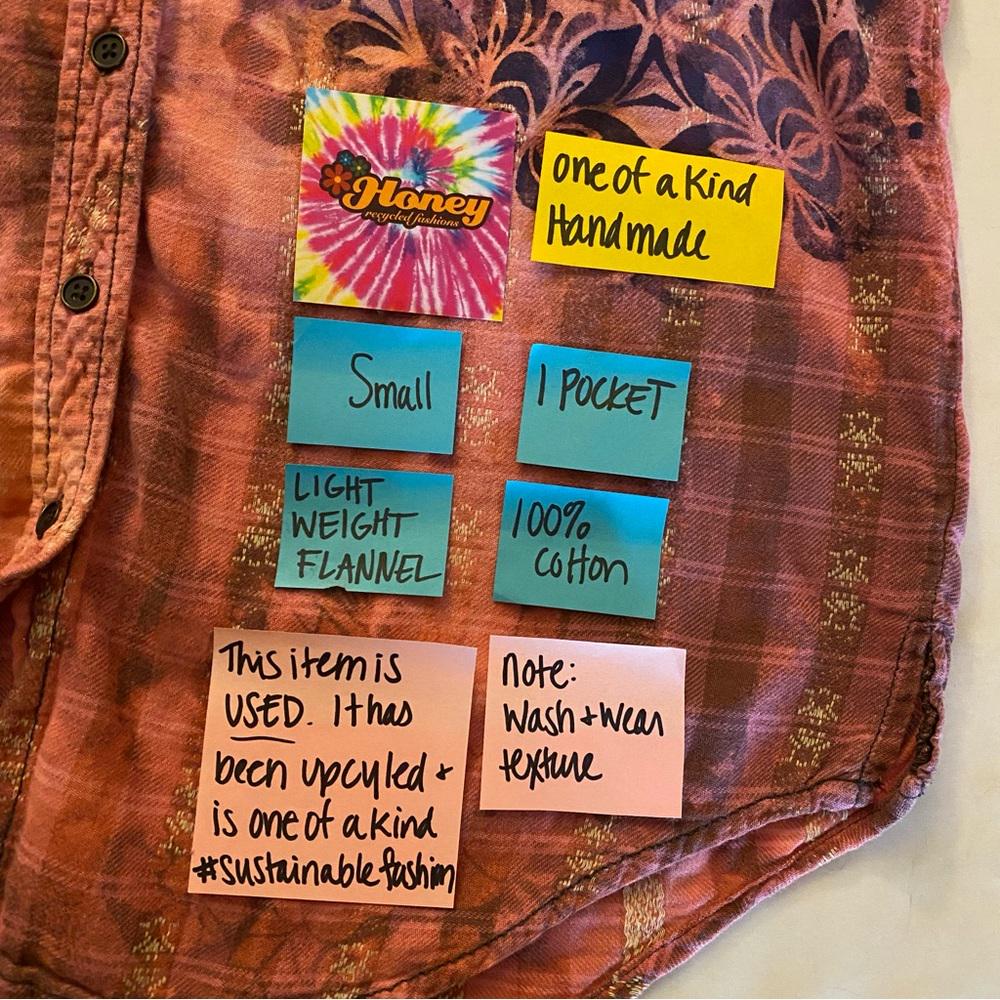 Honey
recycled fashions
one of a kind
Handmade
Small
1 POCKET
LIGHT
WEIGHT
FLANNEL
100%
cotton
This item is
USED. It has
been upcyled +
is one of a kind
#sustainable fashion
note:
wash + wear
texture